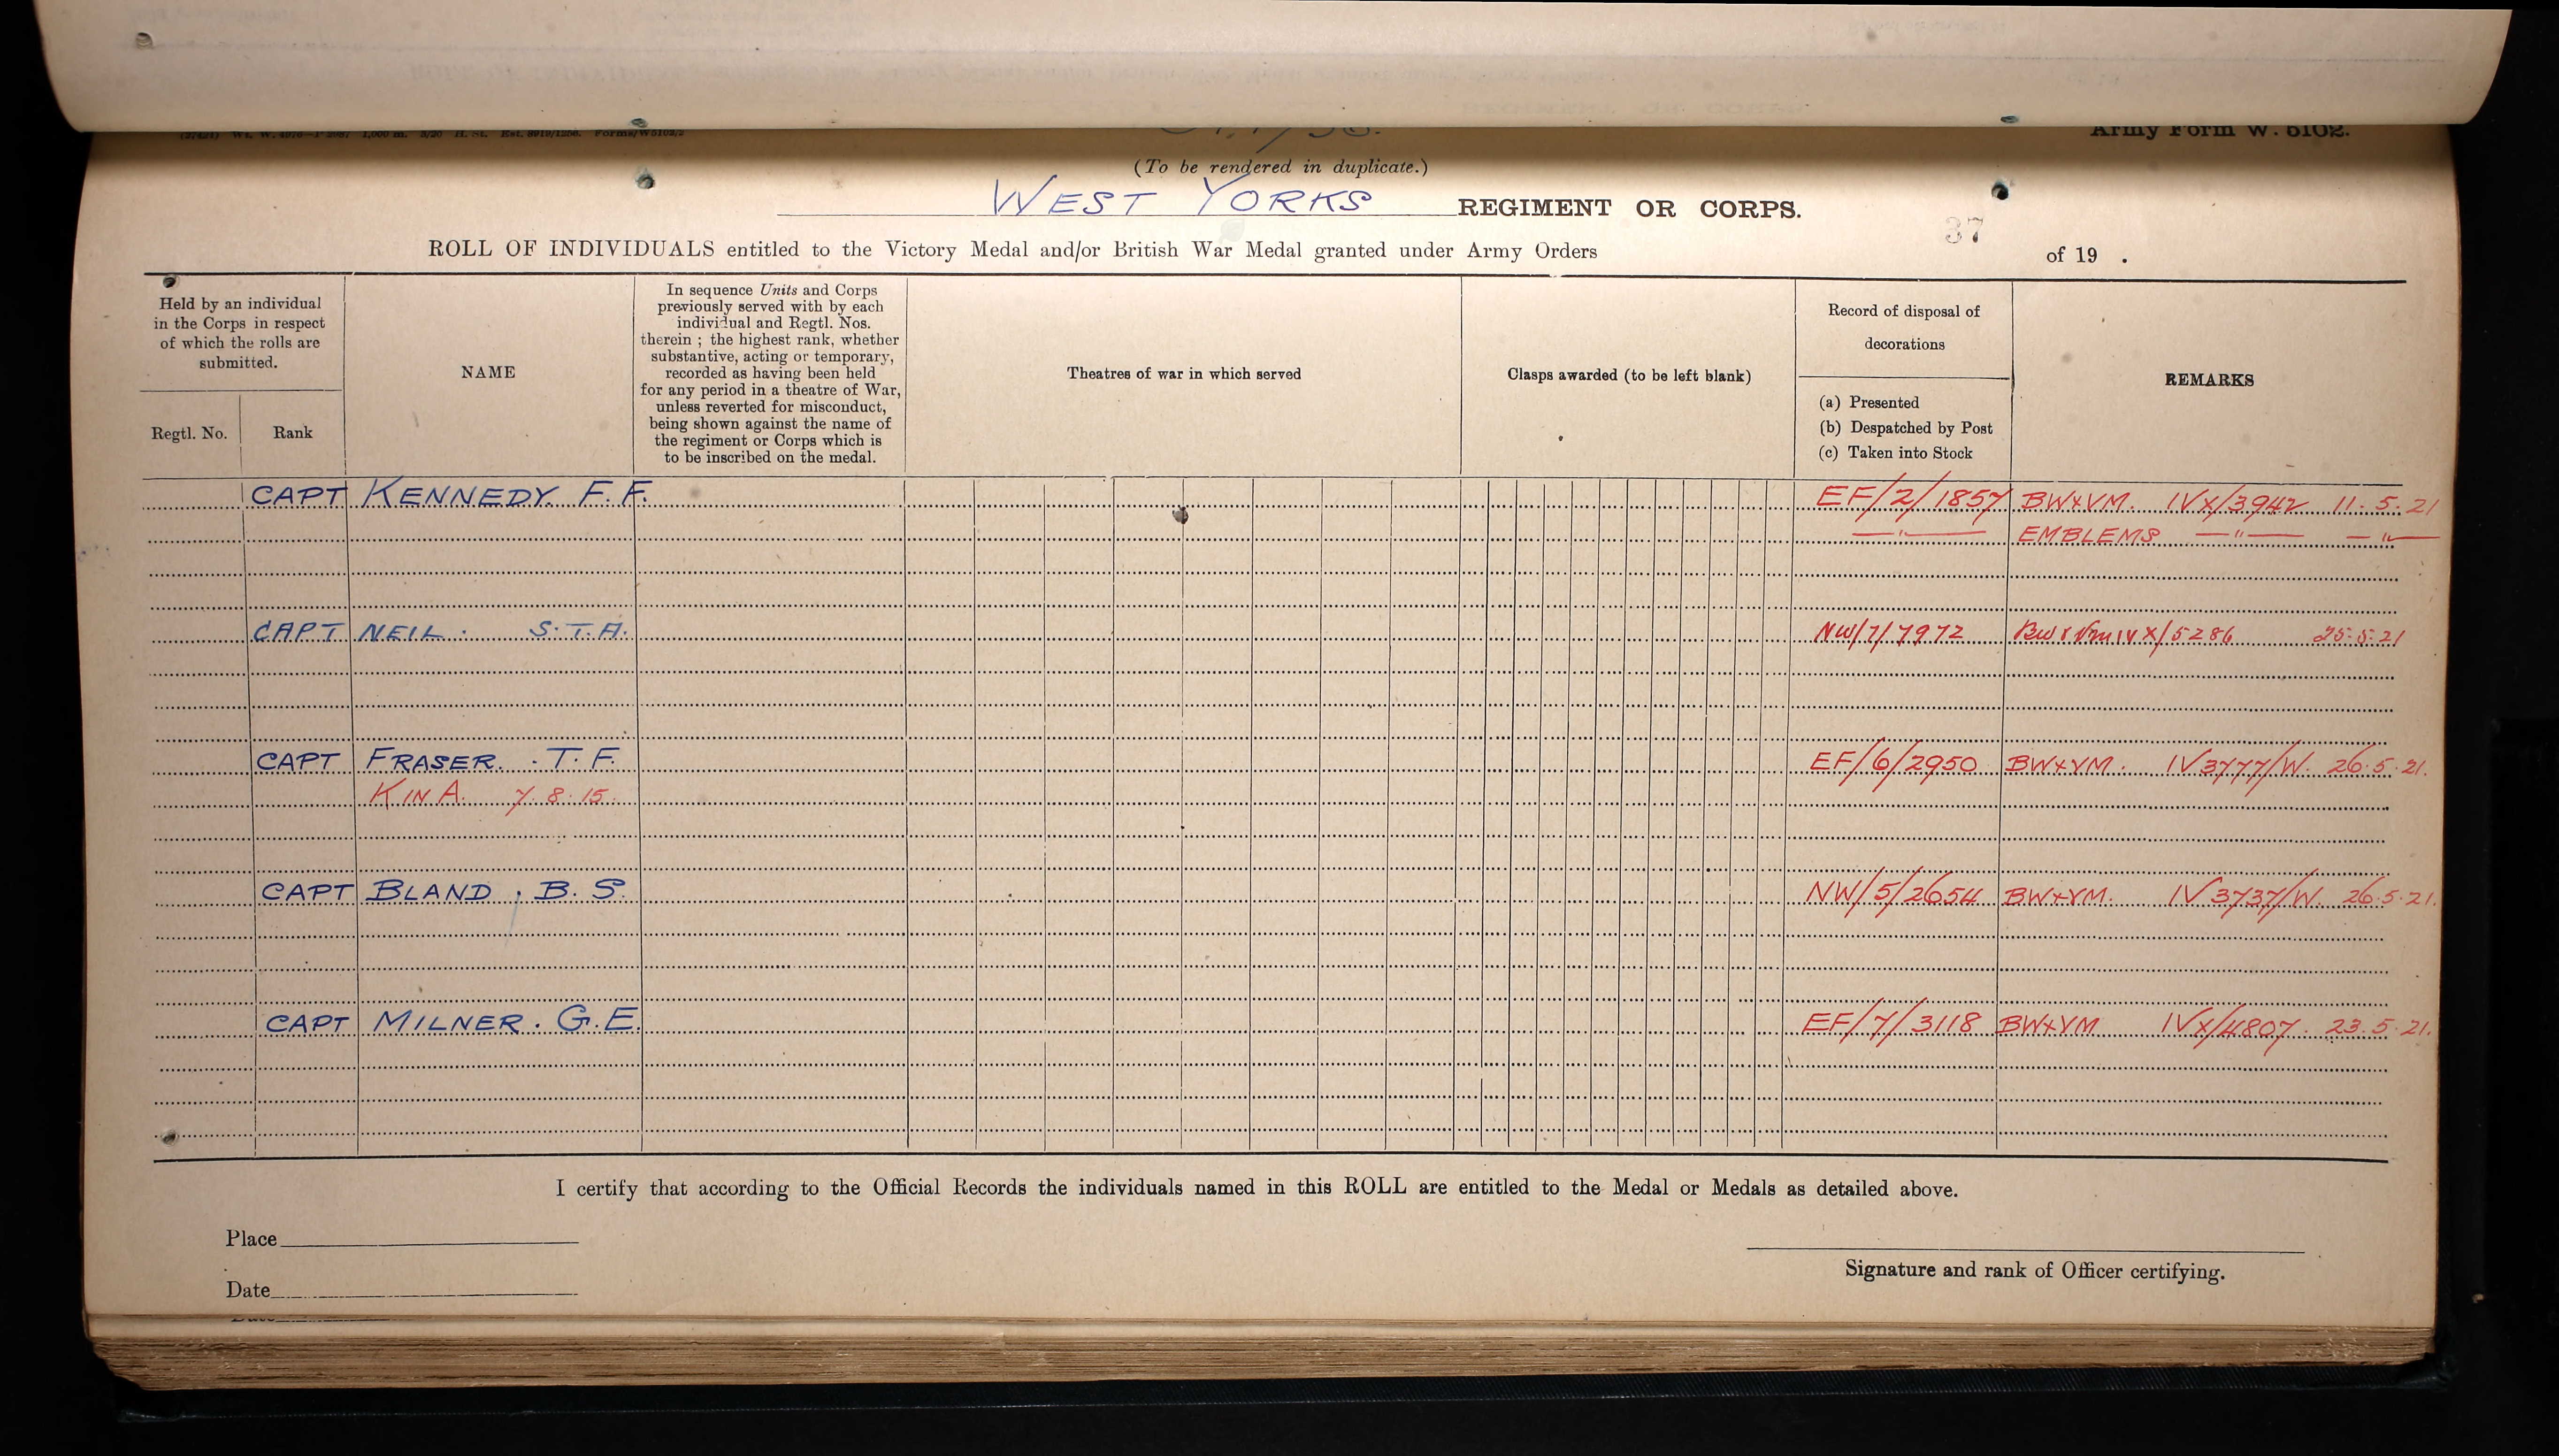 (To be rendered in duplicate.)
WEST YORKS REGIMENT OR CORPS.
37
ROLL OF INDIVIDUALS entitled to the Victory Medal and/or British War Medal granted under Army Orders of 19 .
Held by an individual
in the Corps in respect
of which the rolls are
submitted.
Regtl. No. Rank
NAME
In sequence Units and Corps
previously served with by each
individual and Regtl. Nos.
therein ; the highest rank, whether
substantive, acting or temporary,
recorded as having been held
for any period in a theatre of War,
unless reverted for misconduct,
being shown against the name of
the regiment or Corps which is
to be inscribed on the medal.
Theatres of war in which served
Clasps awarded (to be left blank)
Record of disposal of
decorations
(a) Presented
(b) Despatched by Post
(c) Taken into Stock
REMARKS
CAPT KENNEDY. F. F. EF/2/1857 BW+VM. IVX/3942 11.5.21
—"— EMBLEMS —"— —"—
CAPT NEIL. S.T.A. NW/7/7972 BW & VM IVX/5286 25.5.21
CAPT FRASER. T. F. EF/6/2950 BW+VM. IV 3777/W. 26.5.21.
K IN A. 7.8.15.
CAPT BLAND, B. S. NW/5/2654 BW+VM. IV 3737/W. 26.5.21.
CAPT MILNER. G.E. EF/7/3118 BW+VM IVX/4807. 23.5.21.
I certify that according to the Official Records the individuals named in this ROLL are entitled to the Medal or Medals as detailed above.
Place
Signature and rank of Officer certifying.
Date